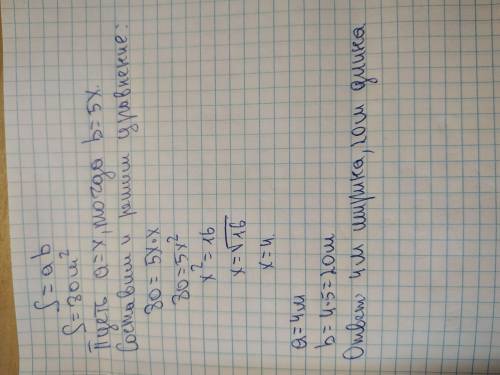 S=ab
S=80м²
Пусть a=x, тогда b=5x.
Составим и решим уравнение:
80=5x·x
80=5x²
x²=16
x=√16
x=4.
a=4м
b=4·5=20м
Ответ 4м ширина, 20м длина